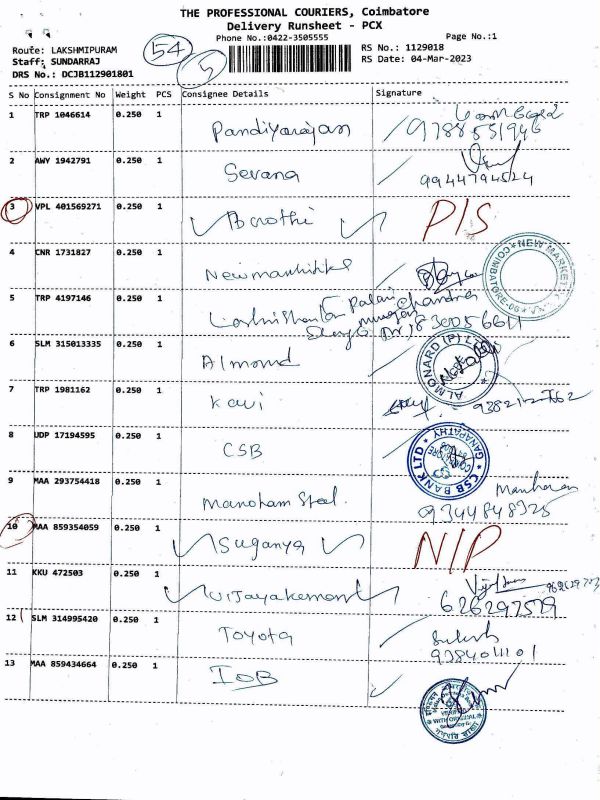 THE PROFESSIONAL COURIERS, Coimbatore
Delivery Runsheet - PCX
Phone No.:0422-3505555
Page No.:1
Route: LAKSHMIPURAM
Staff: SUNDARRAJ
DRS No.: DCJB112901801
54
5
RS No.: 1129018
RS Date: 04-Mar-2023
S No Consignment No Weight PCS Consignee Details Signature
1 TRP 1046614 0.250 1 Pandiyarajan 9788551946
2 AWY 1942791 0.250 1 Sevana 9944794524
3 VPL 401569271 0.250 1 P/S
4 CNR 1731827 0.250 1
NEW MARKET
COIMBATORE-06
5 TRP 4197146 0.250 1 Chandra
6 SLM 315013335 0.250 1 Almond
ALMONARD (P) LTD
7 TRP 1981162 0.250 1 Kavi
8 UDP 17194595 0.250 1 CSB
CSB BANK LTD GANAPATHY
9 MAA 293754418 0.250 1 Manoham Steel Manharan
9344848325
10 MAA 859354059 0.250 1 Suganya N/P
11 KKU 472503 0.250 1 Vijayakemar
12 SLM 314995420 0.250 1 Toyota
13 MAA 859434664 0.250 1 IOB